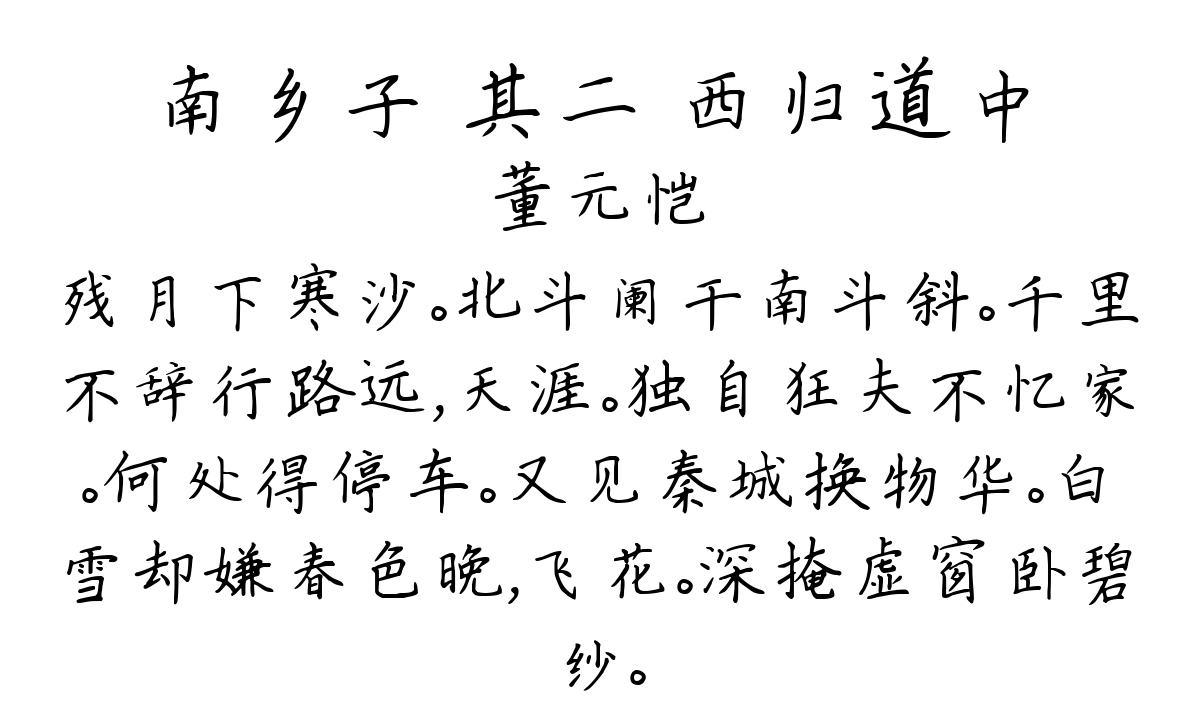 南乡子 其二 西归道中
董元恺
残月下寒沙。北斗阑干南斗斜。千里
不辞行路远,天涯。独自狂夫不忆家
。何处得停车。又见秦城换物华。白
雪却嫌春色晚,飞花。深掩虚窗卧碧
纱。